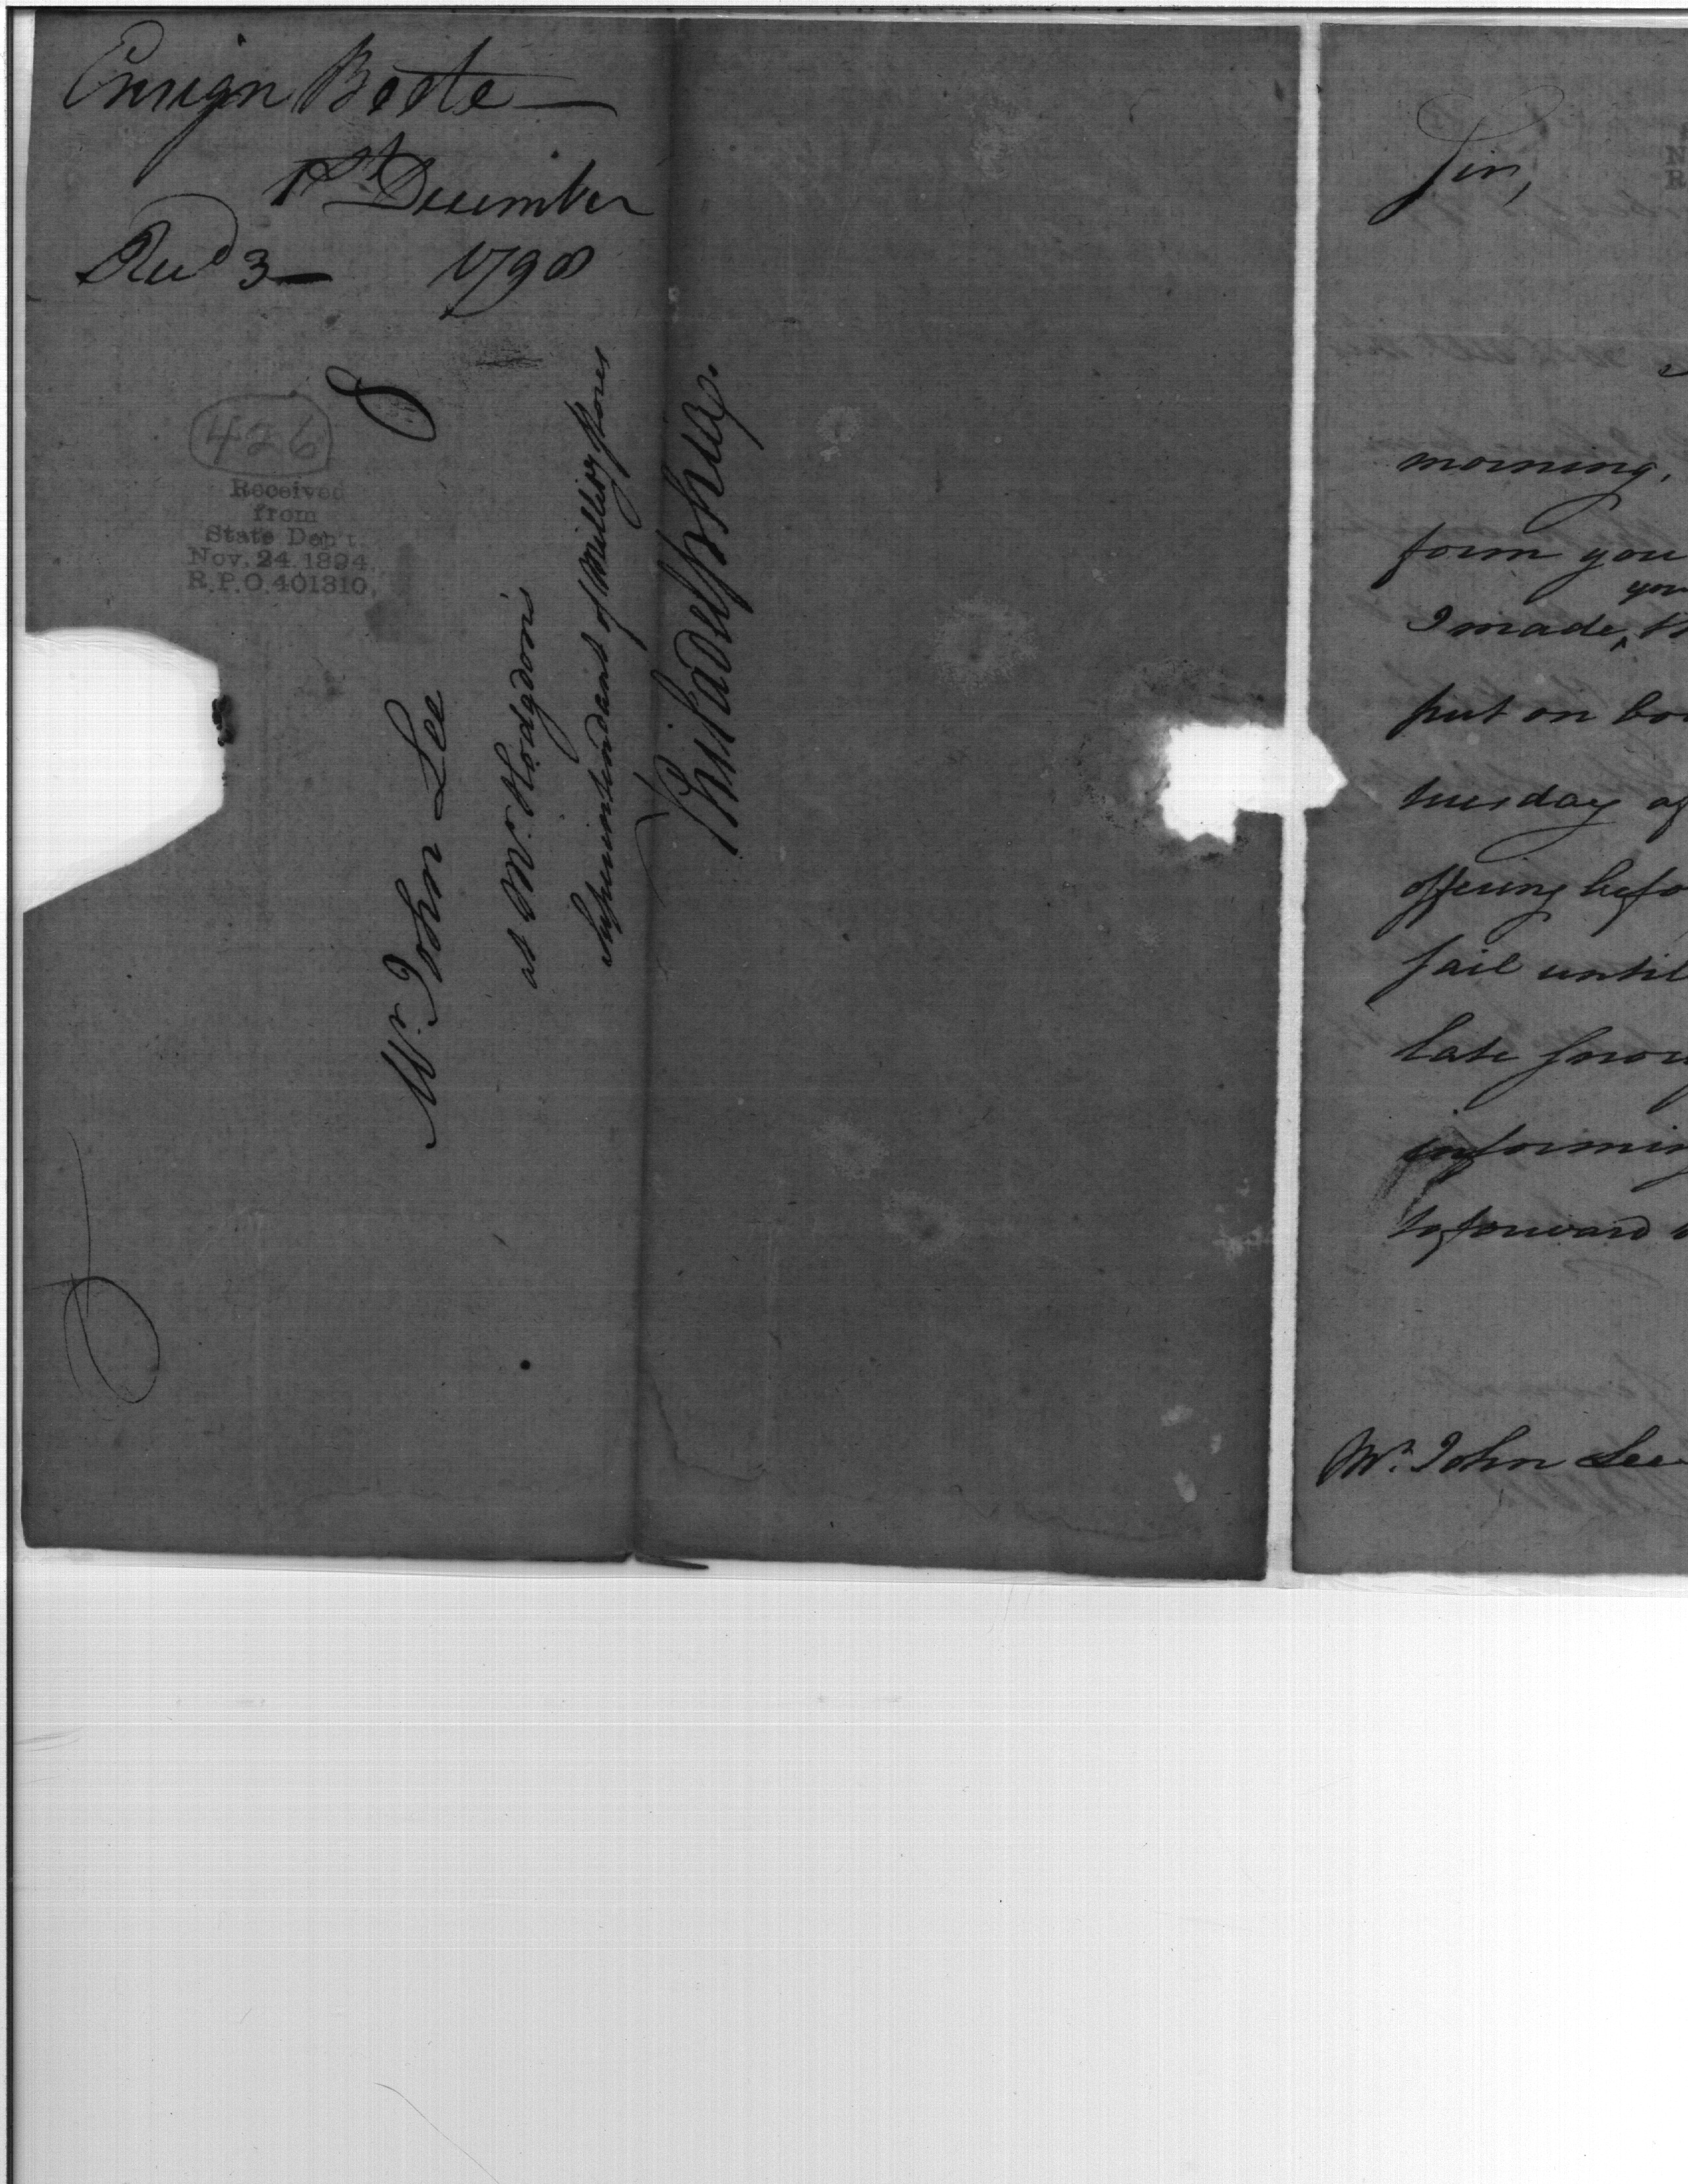 Ensign Boote
1st December
Recd 3 — 1798
8
426
Received
from
State Dep't.
Nov. 24 1894.
R.P.O. 401310.
Mr. John Lee
at Mr. Hodgdon's
Superintendant of Military Stores
Philadelphia.
Sir,
morning,
form you
you
I made, th
put on bo
tuesday af
offering befo
sail until
late snow
informin
to forward
Mr. John Lee